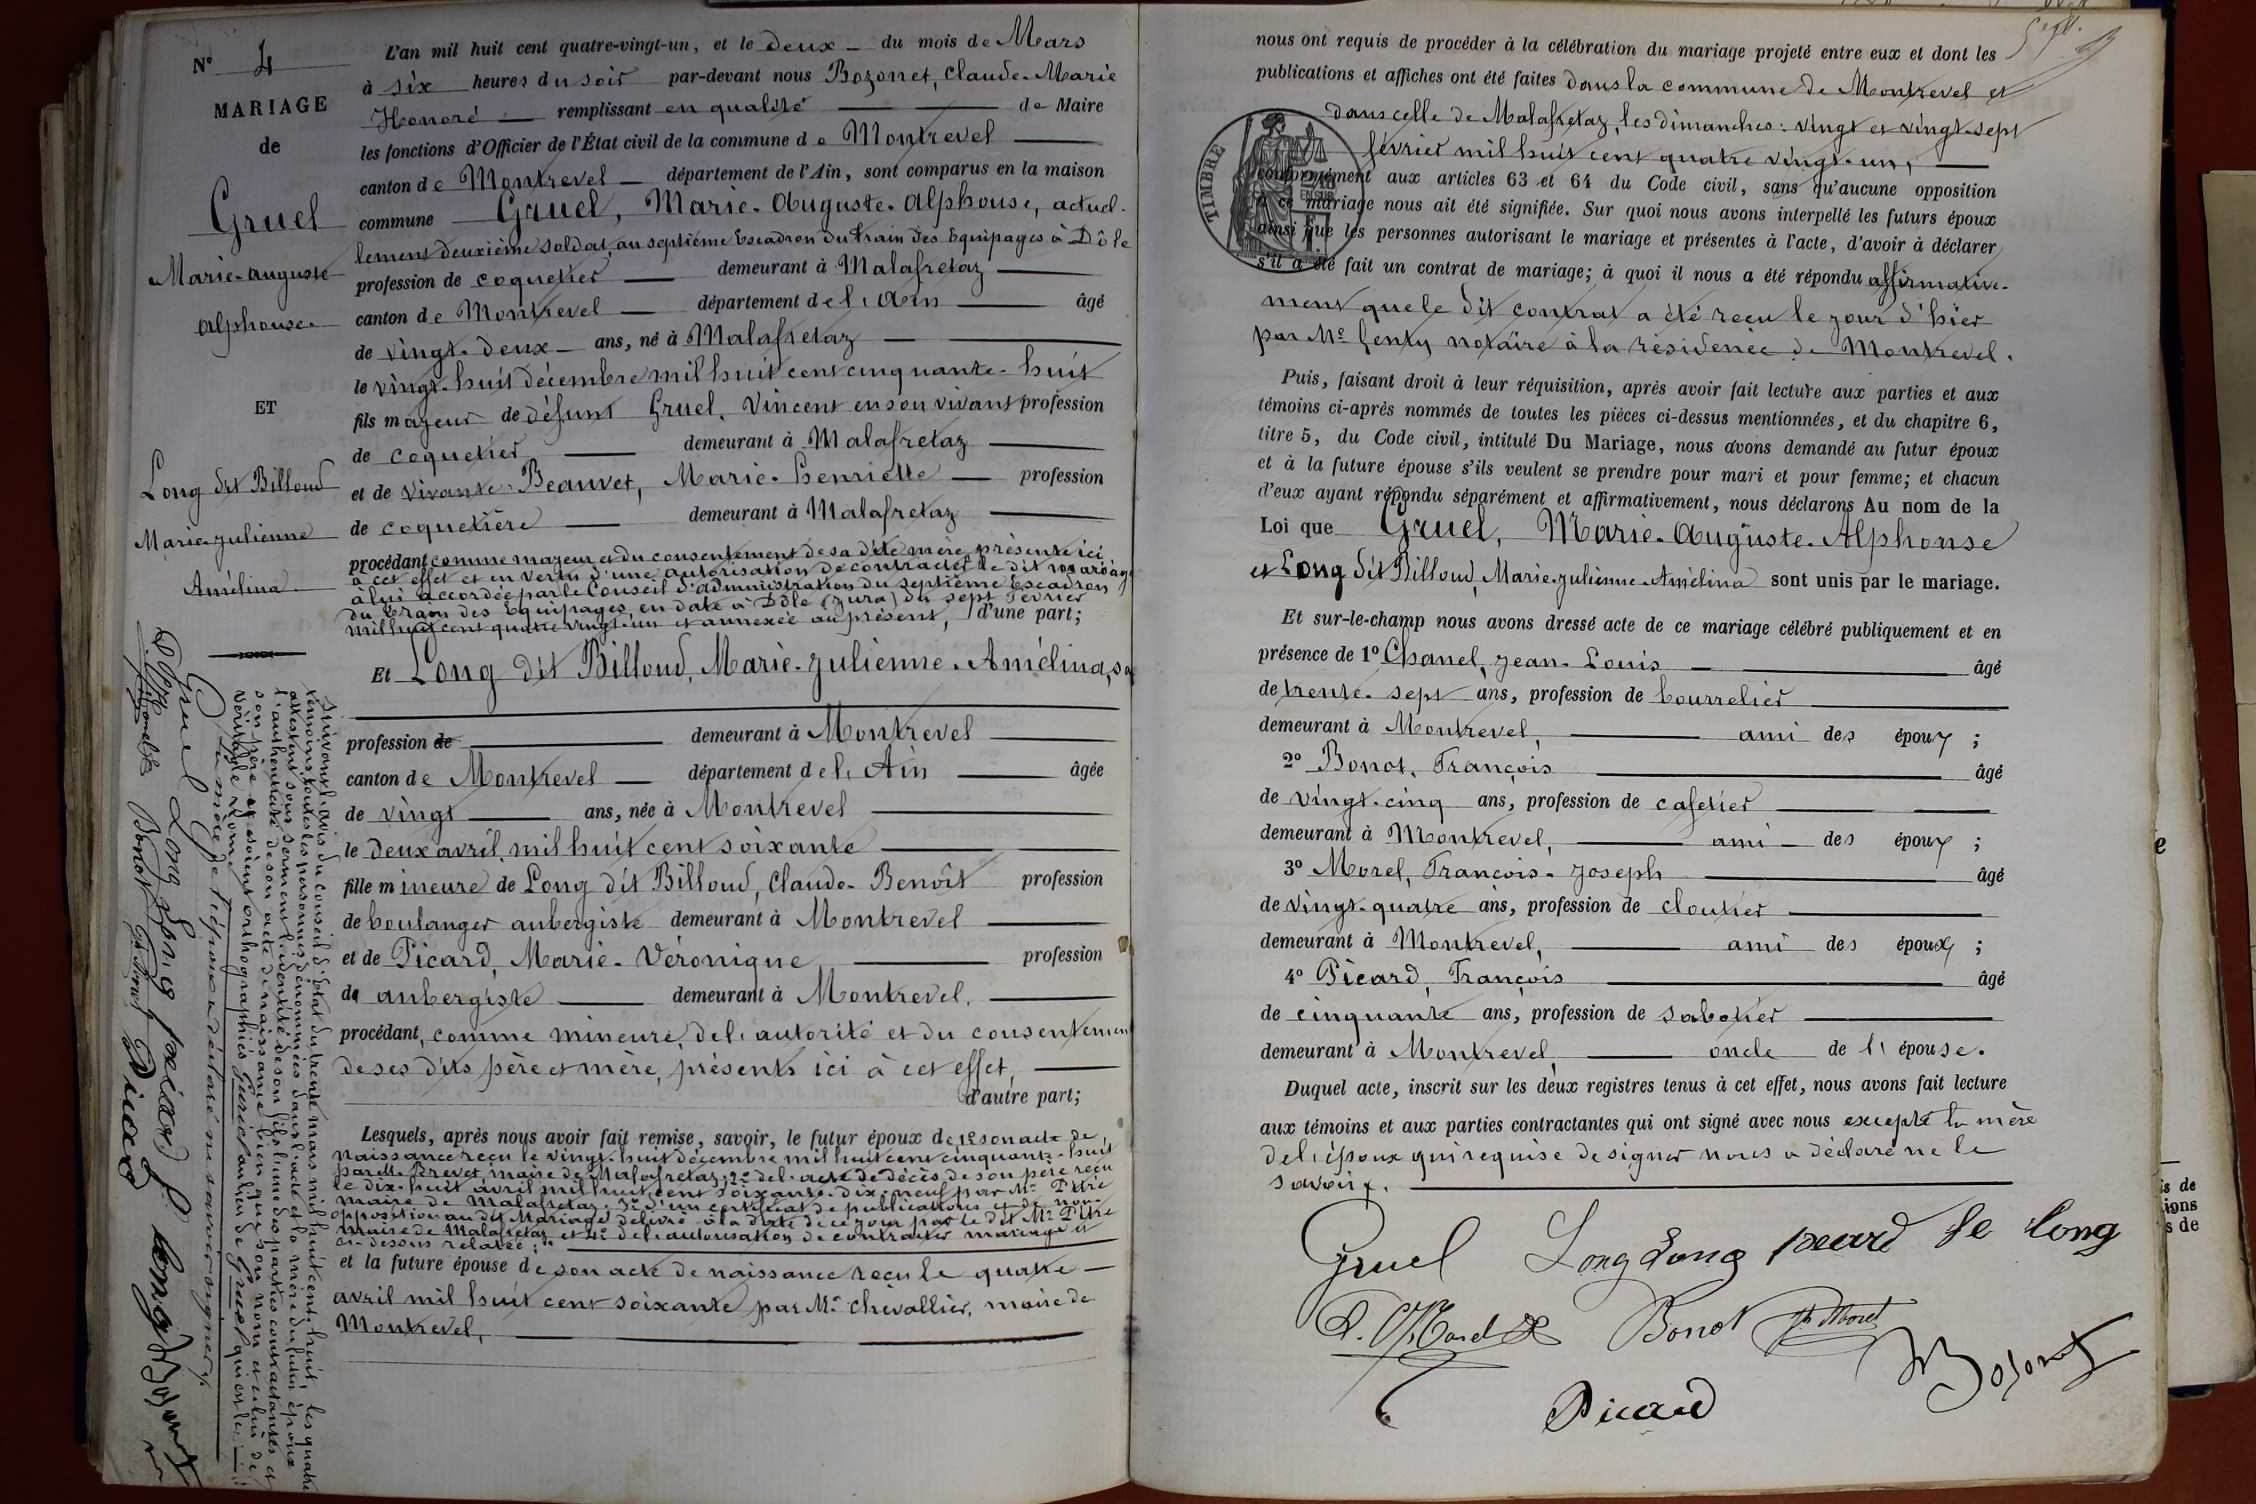 N° 4
MARIAGE
de
Gruel
Marie-Auguste
Alphonse.
ET
Long dit Billoud
Marie-Julienne
Amélina
L'an mil huit cent quatre-vingt-un, et le deux du mois de Mars
à six heures du soir par-devant nous Bozonet, Claude-Marie
Honoré remplissant en qualité de Maire
les fonctions d'Officier de l'État civil de la commune de Montrevel
canton de Montrevel département de l'Ain, sont comparus en la maison
commune Gruel, Marie-Auguste-Alphonse, actuel-
lement deuxième soldat, au septième Escadron du train des Equipages à Dôle
profession de coquetier demeurant à Malafretaz
canton de Montrevel département de l'Ain âgé
de vingt-deux ans, né à Malafretaz
le vingt-huit décembre mil huit cent cinquante-huit
fils majeur de défunt Gruel, Vincent en son vivant profession
de coquetier demeurant à Malafretaz
et de vivante Beauvet, Marie-Henriette profession
de coquetière demeurant à Malafretaz
procédant comme majeur et du consentement de sa dite mère présente ici
à cet effet et en vertu d'une autorisation de contracter le dit mariage
à lui accordée par le Conseil d'administration du septième Escadron
du train des Equipages, en date à Dôle (Jura) du sept février
mil huit cent quatre vingt-un et annexée au présent, d'une part;
Et Long dit Billoud, Marie-Julienne-Amélina, sa
profession de demeurant à Montrevel
canton de Montrevel département de l'Ain âgée
de vingt ans, née à Montrevel
le deux avril, mil huit cent soixante
fille mineure de Long dit Billoud, Claude-Benoît profession
de boulanger aubergiste demeurant à Montrevel
et de Picard, Marie-Véronique profession
de aubergiste demeurant à Montrevel,
procédant, comme mineure, de l'autorité et du consentement
de ses dits père et mère, présents ici à cet effet,
d'autre part;
Lesquels, après nous avoir fait remise, savoir, le futur époux de 1° son acte de
naissance reçu le vingt-huit décembre mil huit cent cinquante-huit
par M. Brevet, maire de Malafretaz, 2° de l'acte de décès de son père reçu
le dix-huit avril mil huit cent soixante-dix-neuf par Mr Pitre
maire de Malafretaz, 3° d'un certificat de publications et de non-
opposition au dit Mariage délivré à la date de ce jour par le dit Mr Pitre
maire de Malafretaz et 4° de l'autorisation de contracter mariage
ci-dessus relatée;
et la future épouse de son acte de naissance reçu le quatre
avril mil huit cent soixante par Mr Chevallier, maire de
Montrevel,
Suivant l'avis du conseil d'état du trente mars mil huit cent huit, les quatre
témoins, toutes les personnes dénommées dans l'acte et la mère du futur époux
attestent sous serment l'identité de son fils l'une des parties contractantes et
l'authenticité de son acte de naissance bien que son nom et celui de
son père y soient orthographiés Gueriel au lieu de Gruel qui est le
véritable nom.
La mère de l'époux a déclaré ne savoir signer
Gruel Long Long picard f long Bozonet
Bonot Morel Picard
nous ont requis de procéder à la célébration du mariage projeté entre eux et dont les
publications et affiches ont été faites dans la commune de Montrevel et
dans celle de Malafretaz, les dimanches: vingt et vingt-sept
février mil huit cent quatre vingt-un,
conformément aux articles 63 et 64 du Code civil, sans qu'aucune opposition
à ce mariage nous ait été signifiée. Sur quoi nous avons interpellé les futurs époux
ainsi que les personnes autorisant le mariage et présentes à l'acte, d'avoir à déclarer
s'il a été fait un contrat de mariage; à quoi il nous a été répondu affirmative-
ment que le dit contrat a été reçu le jour d'hier
par Me Genty notaire à la résidence de Montrevel.
TIMBRE
Puis, faisant droit à leur réquisition, après avoir fait lecture aux parties et aux
témoins ci-après nommés de toutes les pièces ci-dessus mentionnées, et du chapitre 6,
titre 5, du Code civil, intitulé Du Mariage, nous avons demandé au futur époux
et à la future épouse s'ils veulent se prendre pour mari et pour femme; et chacun
d'eux ayant répondu séparément et affirmativement, nous déclarons Au nom de la
Loi que Gruel, Marie-Auguste-Alphonse
et Long dit Billoud, Marie-Julienne-Amélina sont unis par le mariage.
Et sur-le-champ nous avons dressé acte de ce mariage célébré publiquement et en
présence de 1° Chanel, Jean-Louis âgé
de trente-sept ans, profession de bourrelier
demeurant à Montrevel, ami des époux;
2° Bonot, François âgé
de vingt-cinq ans, profession de cafetier
demeurant à Montrevel, ami des époux;
3° Morel, François-Joseph âgé
de vingt-quatre ans, profession de cloutier
demeurant à Montrevel, ami des époux;
4° Picard, François âgé
de cinquante ans, profession de sabotier
demeurant à Montrevel, oncle de l'épouse.
Duquel acte, inscrit sur les deux registres tenus à cet effet, nous avons fait lecture
aux témoins et aux parties contractantes qui ont signé avec nous excepté la mère
de l'époux qui requise de signer nous a déclaré ne le
savoir.
Gruel Long Long picard fe long
Bonot Morel
Picard Bozonet